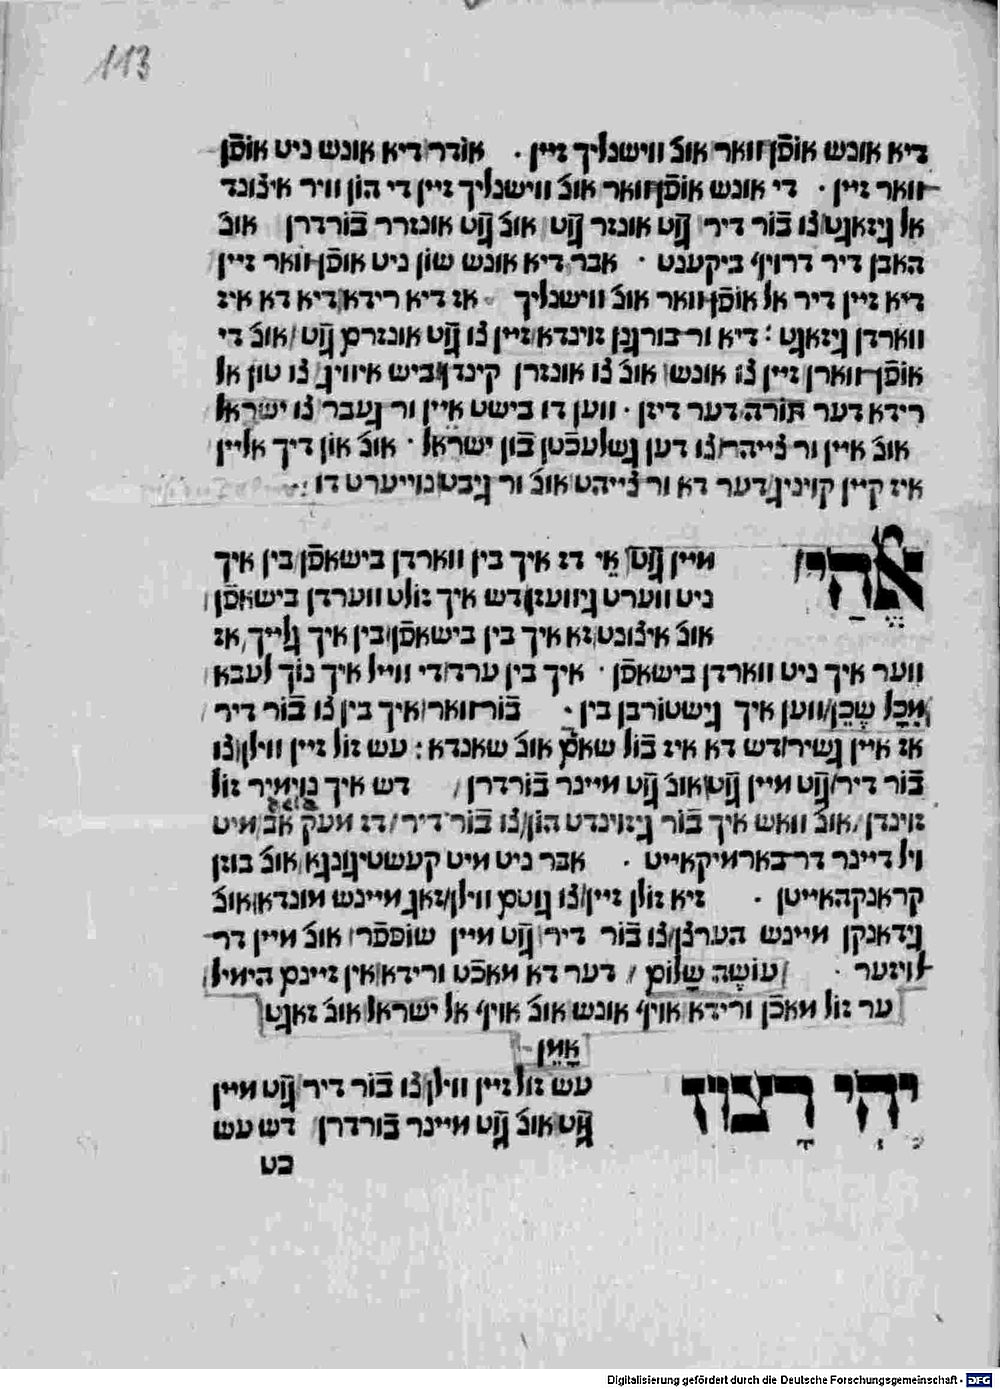 113
דיא אונש אופֿן וואר אונ׳ ווישנליך זיין . אודר דיא אונש ניט אופֿן
וואר זיין . די אונש אופֿן וואר אונ׳ ווישנליך זיין די הון וויר איצונד
אל גיזאגט צו בֿור דיר גֿוט אונזר גֿוט אונ׳ גֿוט אונזרר בֿורדרן אונ׳
האבן דיר דרויף ביקענט . אבר דיא אונש שון ניט אופֿן וואר זיין
דיא זיין דיר אל אופֿן וואר אונ׳ ווישנליך אז דיא רידא דיא דא איז
ווארדן גיזאגט : דיא ור בורגנן זוינדא זיין צו גֿוט אונזרם גֿוט אונ׳ די
אופֿן ווארן זיין צו אונש אונ׳ צו אונזרן קינדן ביש איוויג צו טון אל
רידא דער תורה דער דיזן . ווען דו בישט איין ור געבר צו ישראל
אונ׳ איין ור צייהר צו דען גשלעכֿטן בֿון ישראל . אונ׳ און דיך אליין
איז קיין קויניג דער דא ור צייהט אונ׳ ור גיבט נוייערט דו :
אֱלֹהַי
מיין גֿוט אֵי דז איך בין ווארדן בישאפֿן בין איך
ניט ווערט גיוועזן דש איך זולט ווערדן בישאפֿן
אונ׳ איצונט זא איך בין בישאפֿן בין איך גלייך אז
ווער איך ניט ווארדן בישאפֿן . איך בין ערד די ווייל איך נוך לעבא
מִכָּל שֶׁכֵּן ווען איך גישטורבן בין . בֿור וואר איך בין צו בֿור דיר
אז איין גשיר דש דא איז בֿול שאם אונ׳ שאנדא : עש זול זיין ווילן צו
בֿור דיר גֿוט מיין גֿוט אונ׳ גֿוט מיינר בֿורדרן דש איך נוימיר זול
זוינדן אונ׳ וואש איך בֿור גיזוינדט הון צו בֿור דיר דז מעק אב מיט
ויל דיינר דר בארמיקאייט . אבר ניט מיט קעשטיגונגא אונ׳ בוזן
קראנקהאייטן . זיא זולן זיין צו גוטם ווילן זאג מיינש מונדא אונ׳
גידאנקן מיינש הערצן צו בֿור דיר גֿוט מיין שופפֿר אונ׳ מיין דר
לויזער . עוֹשֶׂה שָׁלוֹם דער דא מאכֿט ורידא אין זיינם הימיל
ער זול מאכֿן ורידא אויף אונש אונ׳ אויף אל ישראל אונ׳ זאגט
אָמֵן
יְהִי רָצוֹן
עש זול זיין ווילן צו בֿור דיר גֿוט מיין
גֿוט אונ׳ גֿוט מיינר בֿורדרן דש עש
Digitalisierung gefördert durch die Deutsche Forschungsgemeinschaft - DFG